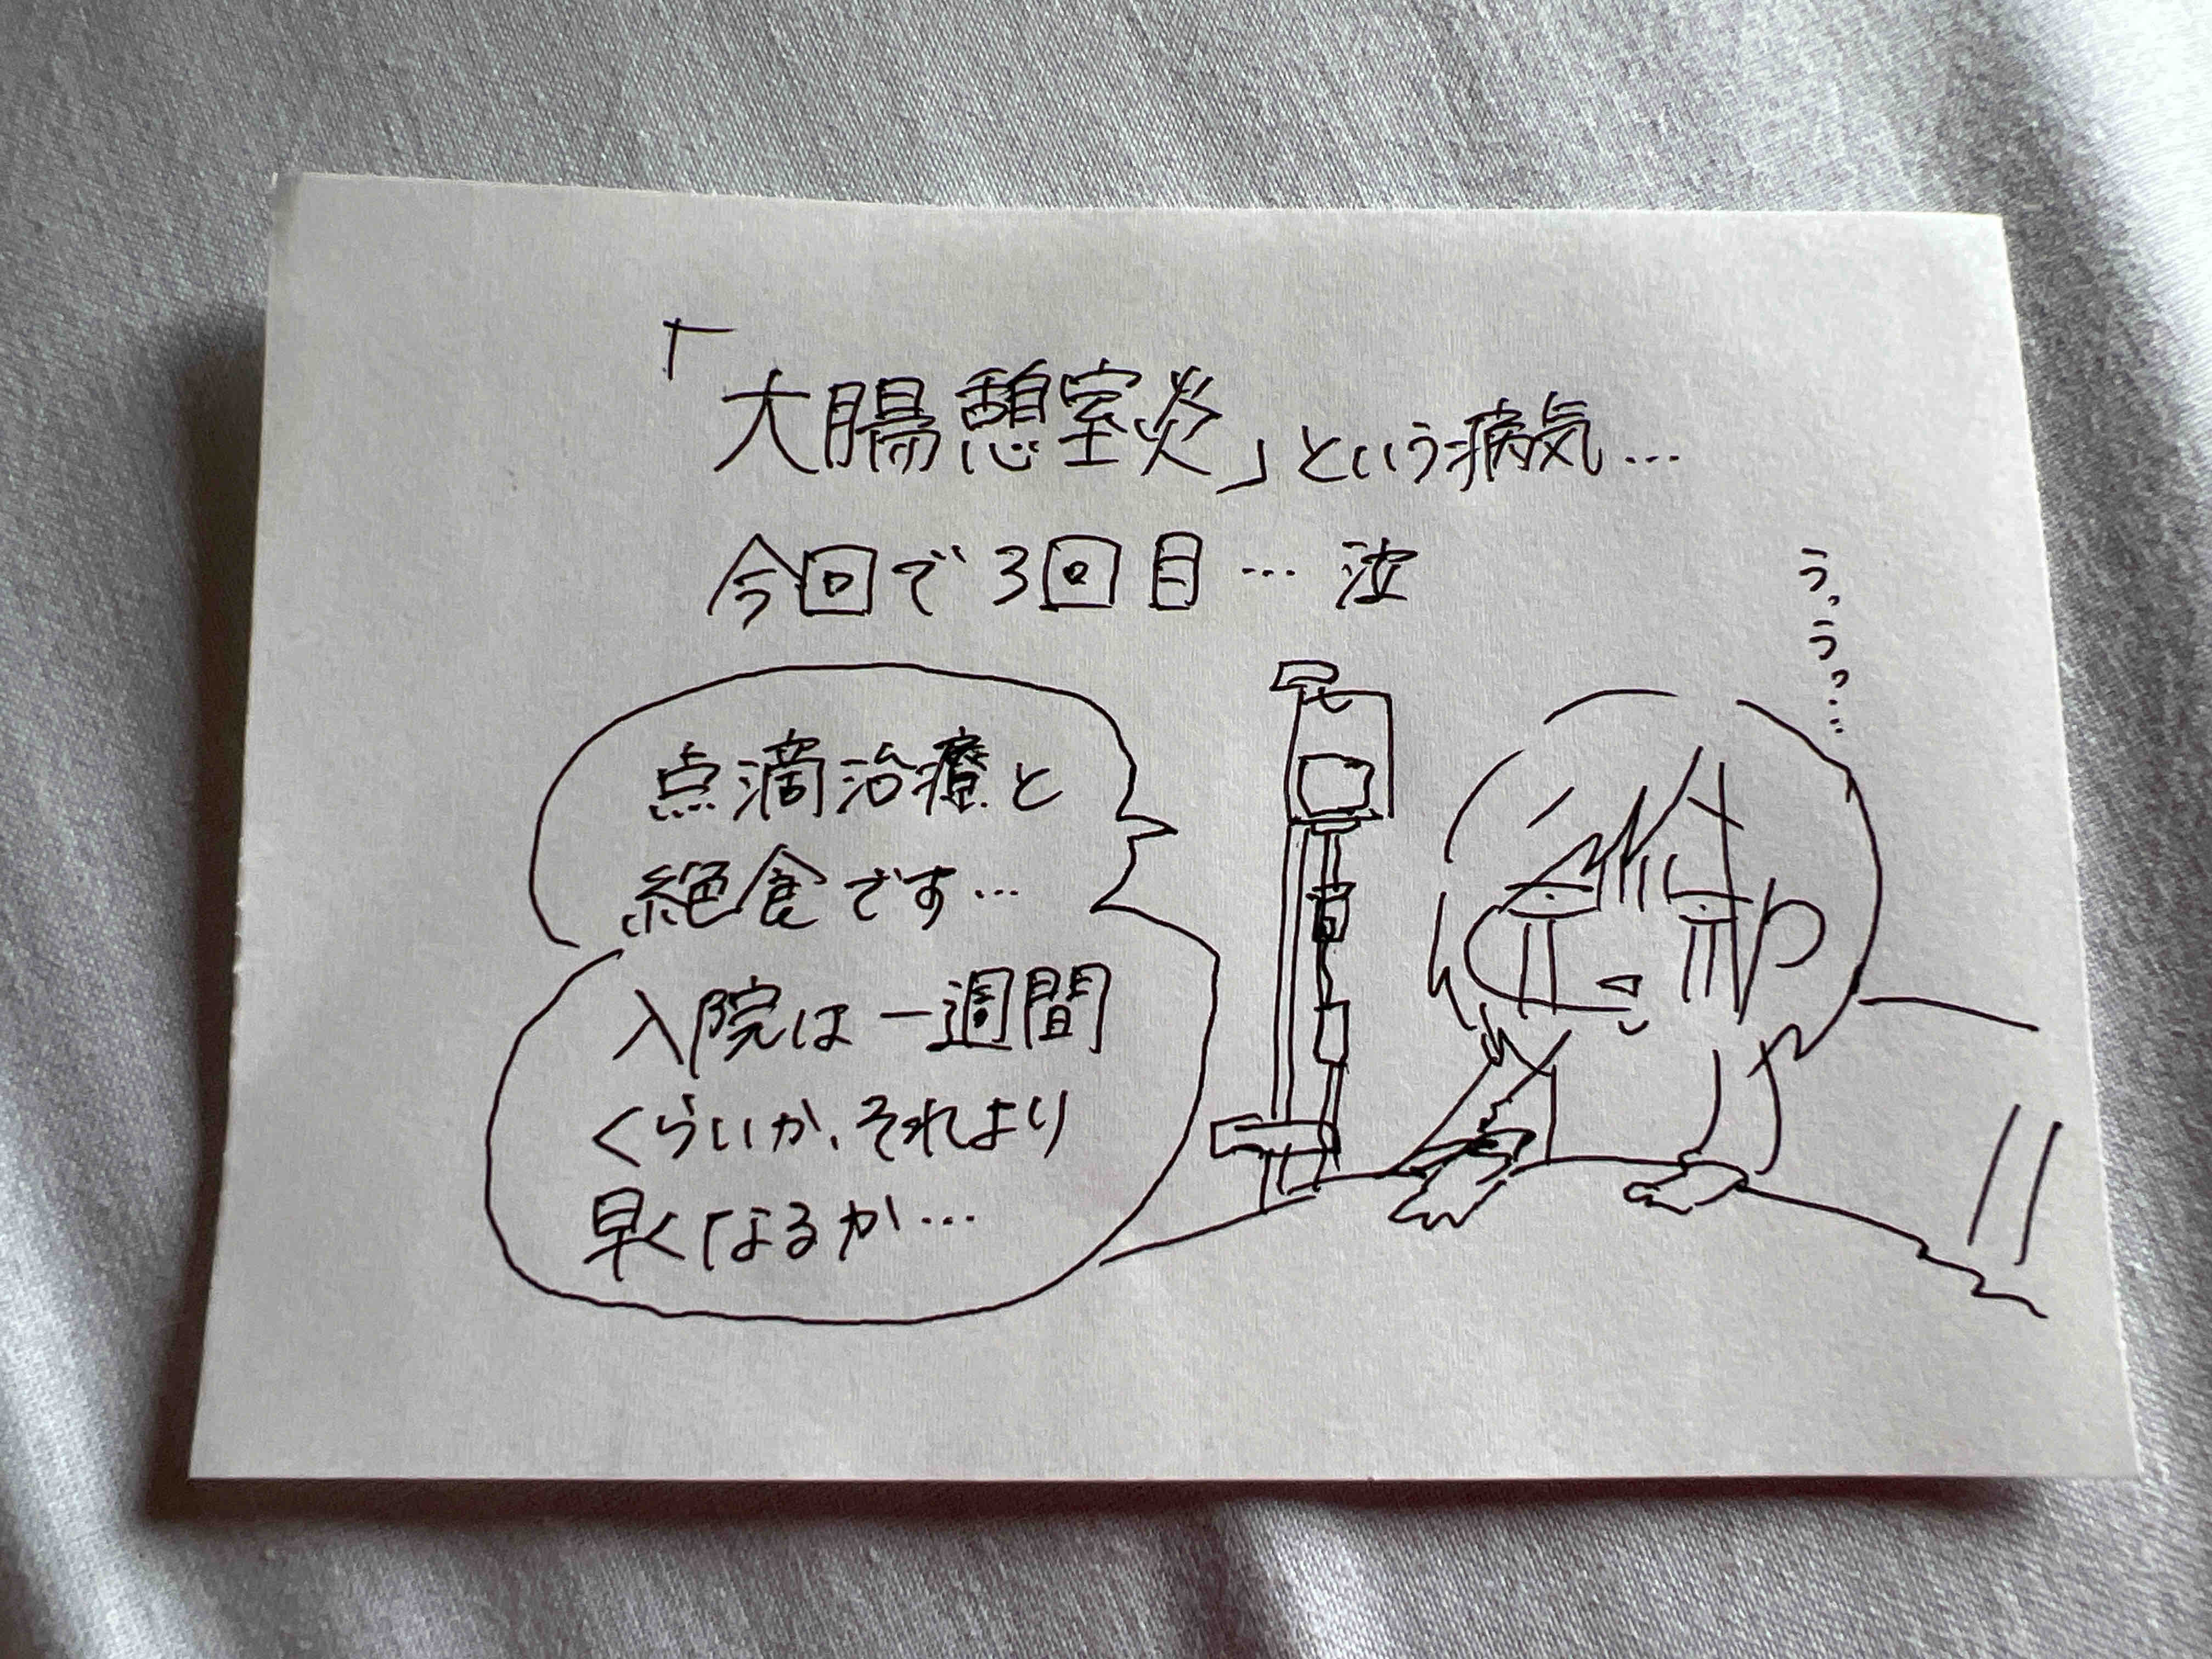 「大腸憩室炎」という病気…
今回で3回目… 泣
うっうっ……
点滴治療と
絶食です…
入院は一週間
くらいか、それより
早くなるか…